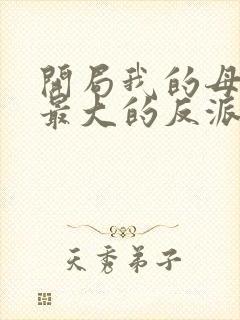 開局我的母
最大的反派
天秀弟子